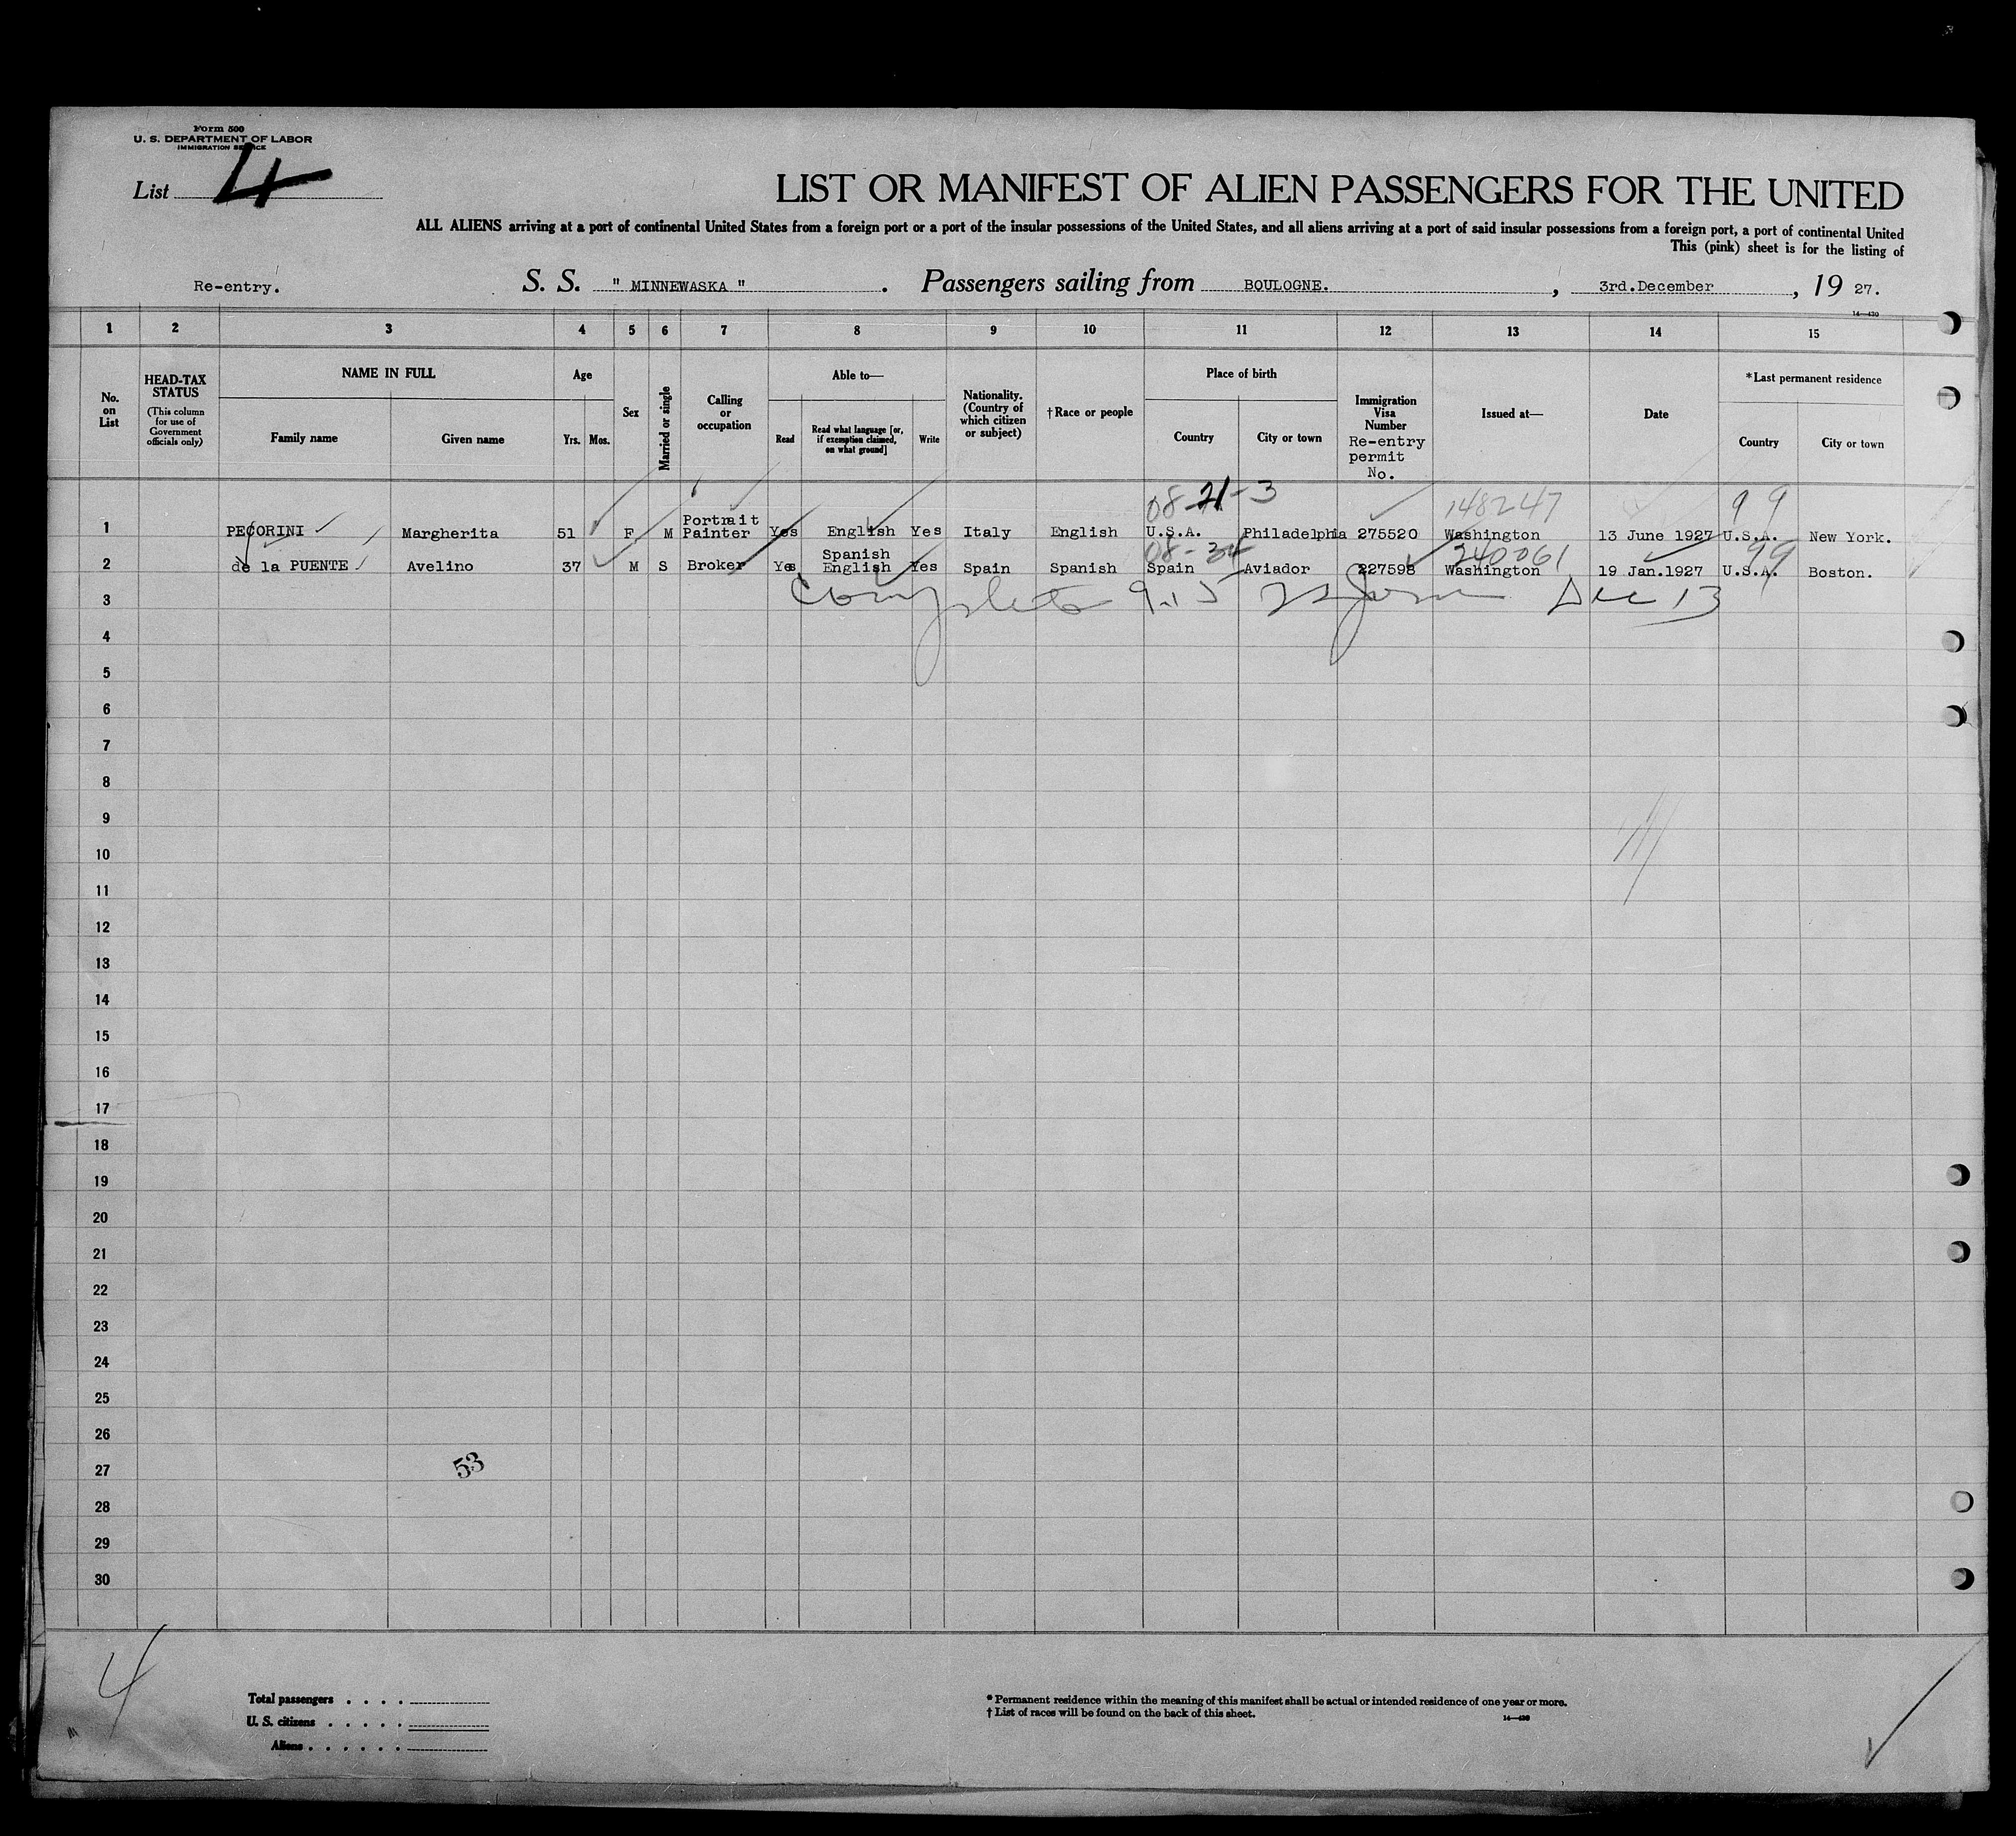 Form 500
U. S. DEPARTMENT OF LABOR
IMMIGRATION SERVICE
List 4
LIST OR MANIFEST OF ALIEN PASSENGERS FOR THE UNITED
ALL ALIENS arriving at a port of continental United States from a foreign port or a port of the insular possessions of the United States, and all aliens arriving at a port of said insular possessions from a foreign port, a port of continental United
This (pink) sheet is for the listing of
Re-entry. S. S. " MINNEWASKA " . Passengers sailing from BOULOGNE. , 3rd.December , 19 27.
14—430
1 2 3 4 5 6 7 8 9 10 11 12 13 14 15
No. on List
HEAD-TAX STATUS
(This column for use of Government officials only)
NAME IN FULL
Family name Given name
Age
Yrs. Mos.
Sex
Married or single
Calling or occupation
Able to—
Read
Read what language [or, if exemption claimed, on what ground]
Write
Nationality. (Country of which citizen or subject)
†Race or people
Place of birth
Country City or town
Immigration Visa Number
Re-entry permit No.
Issued at—
Date
*Last permanent residence
Country City or town
08-21-3 148247 99
1 PECORINI Margherita 51 F M Portrait Painter Yes English Yes Italy English U.S.A. Philadelphia 275520 Washington 13 June 1927 U.S.A. New York.
08-34 240061 99
2 de la PUENTE Avelino 37 M S Broker Yes Spanish English Yes Spain Spanish Spain Aviador 227598 Washington 19 Jan.1927 U.S.A. Boston.
3 Complete Dec 13
4
5
6
7
8
9
10
11
12
13
14
15
16
17
18
19
20
21
22
23
24
25
26
27 53
28
29
30
4
Total passengers . . . .
U. S. citizens . . . . .
Aliens . . . . . .
* Permanent residence within the meaning of this manifest shall be actual or intended residence of one year or more.
† List of races will be found on the back of this sheet.
14—430